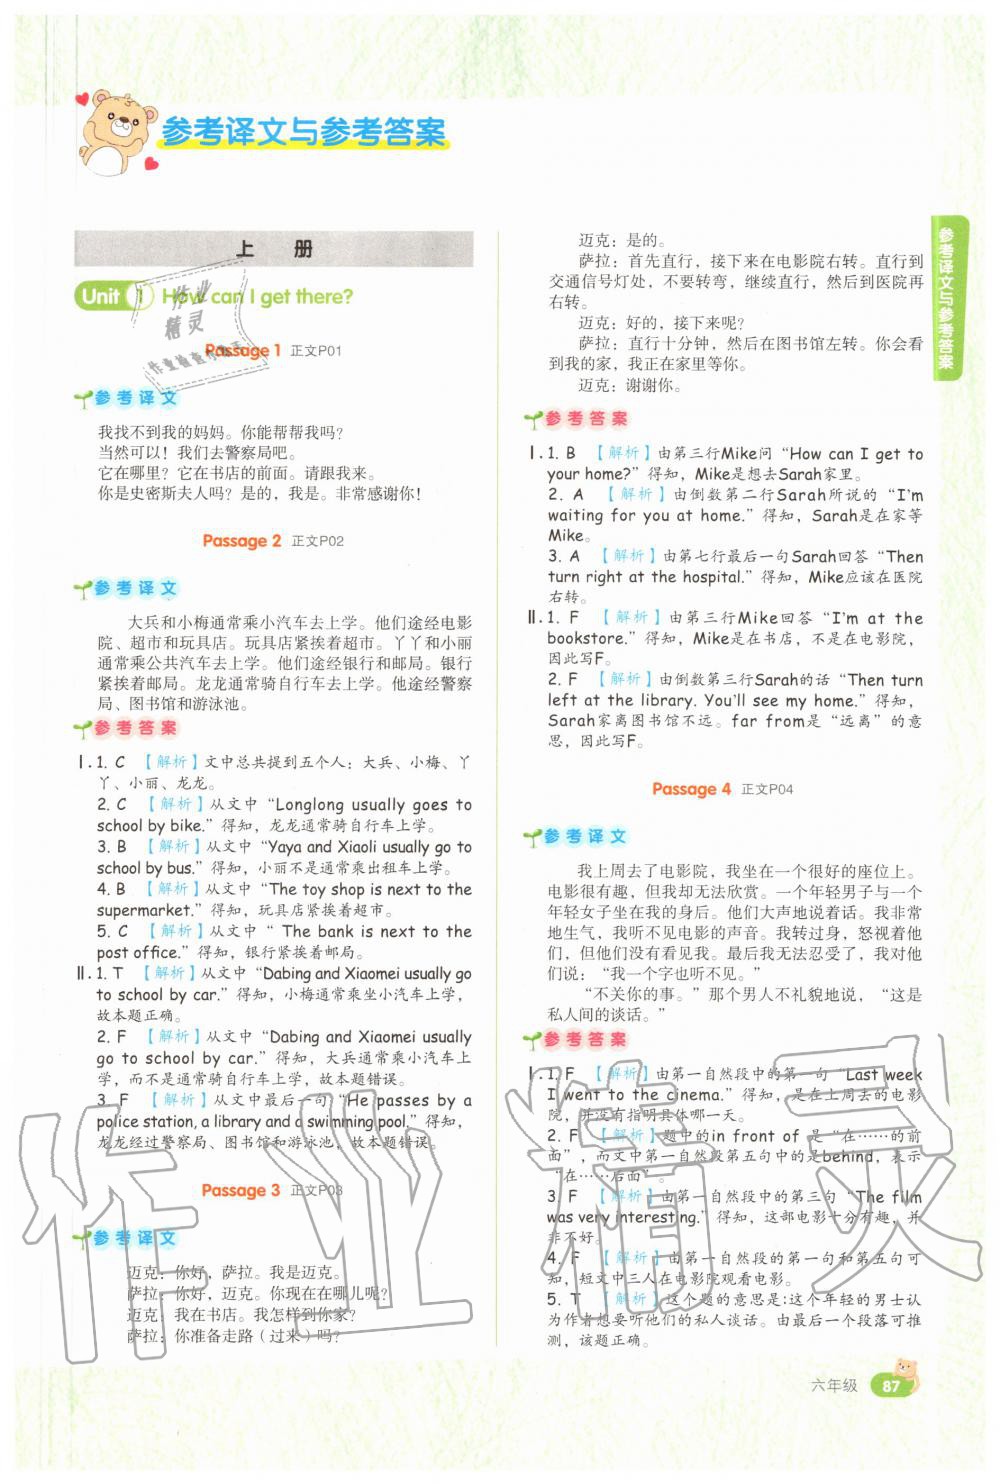 参考译文与参考答案
上 册
Unit 1 How can I get there?
Passage 1 正文P01
参考译文
我找不到我的妈妈。你能帮帮我吗?
当然可以!我们去警察局吧。
它在哪里?它在书店的前面。请跟我来。
你是史密斯夫人吗?是的,我是。非常感谢你!
Passage 2 正文P02
参考译文
大兵和小梅通常乘小汽车去上学。他们途经电影
院、超市和玩具店。玩具店紧挨着超市。丫丫和小丽
通常乘公共汽车去上学。他们途经银行和邮局。银行
紧挨着邮局。龙龙通常骑自行车去上学。他途经警察
局、图书馆和游泳池。
参考答案
Ⅰ.1. C 【解析】文中总共提到五个人:大兵、小梅、丫
丫、小丽、龙龙。
2. C 【解析】从文中“Longlong usually goes to
school by bike.”得知,龙龙通常骑自行车上学。
3. B 【解析】从文中“Yaya and Xiaoli usually go to
school by bus.”得知,小丽不是通常乘出租车上学。
4. B 【解析】从文中“The toy shop is next to the
supermarket.”得知,玩具店紧挨着超市。
5. C 【解析】从文中“ The bank is next to the
post office.”得知,银行紧挨着邮局。
Ⅱ.1. T 【解析】从文中“Dabing and Xiaomei usually go
to school by car.”得知,小梅通常乘坐小汽车上学,
故本题正确。
2. F 【解析】从文中“Dabing and Xiaomei usually
go to school by car.”得知,大兵通常乘小汽车上
学,而不是通常骑自行车上学,故本题错误。
3. F 【解析】从文中最后一句“He passes by a
police station, a library and a swimming pool.”得知,
龙龙经过警察局、图书馆和游泳池,故本题错误。
Passage 3 正文P03
参考译文
迈克:你好,萨拉。我是迈克。
萨拉:你好,迈克。你现在在哪儿呢?
迈克:我在书店。我怎样到你家?
萨拉:你准备走路(过来)吗?
迈克:是的。
萨拉:首先直行,接下来在电影院右转。直行到
交通信号灯处,不要转弯,继续直行,然后到医院再
右转。
迈克:好的,接下来呢?
萨拉:直行十分钟,然后在图书馆左转。你会看
到我的家,我正在家里等你。
迈克:谢谢你。
参考答案
Ⅰ.1. B 【解析】由第三行Mike问“How can I get to
your home?”得知,Mike是想去Sarah家里。
2. A 【解析】由倒数第二行Sarah所说的“I'm
waiting for you at home.”得知,Sarah是在家等
Mike。
3. A 【解析】由第七行最后一句Sarah回答“Then
turn right at the hospital.”得知,Mike应该在医院
右转。
Ⅱ.1. F 【解析】由第三行Mike回答“I'm at the
bookstore.”得知,Mike是在书店,不是在电影院,
因此写F。
2. F 【解析】由倒数第三行Sarah的话“Then turn
left at the library. You'll see my home.”得知,
Sarah家离图书馆不远。far from是“远离”的意
思,因此写F。
Passage 4 正文P04
参考译文
我上周去了电影院,我坐在一个很好的座位上。
电影很有趣,但我却无法欣赏。一个年轻男子与一个
年轻女子坐在我的身后。他们大声地说着话。我非常
地生气,我听不见电影的声音。我转过身,怒视着他
们,但他们没有看见我。最后我无法忍受了,我对他
们说:“我一个字也听不见。”
“不关你的事。”那个男人不礼貌地说,“这是
私人间的谈话。”
参考答案
Ⅰ.1. F 【解析】由第一自然段中的第一句“Last week
I went to the cinema.”得知,是在上周去的电影
院,并没有指明具体哪一天。
2. F 【解析】题中的in front of 是“在……的前
面”,而文中第一自然段第五句中的是behind,表示
“在……后面”。
3. F 【解析】由第一自然段中的第三句“The film
was very interesting.”得知,这部电影十分有趣,并
非不好。
4. F 【解析】由第一自然段的第一句和第五句可
知,短文中三人在电影院观看电影。
5. T 【解析】这个题的意思是:这个年轻的男士认
为作者想要听他们的私人谈话。由最后一个段落可推
测,该题正确。
参考译文与参考答案
六年级 87
作业精灵
作业
精灵